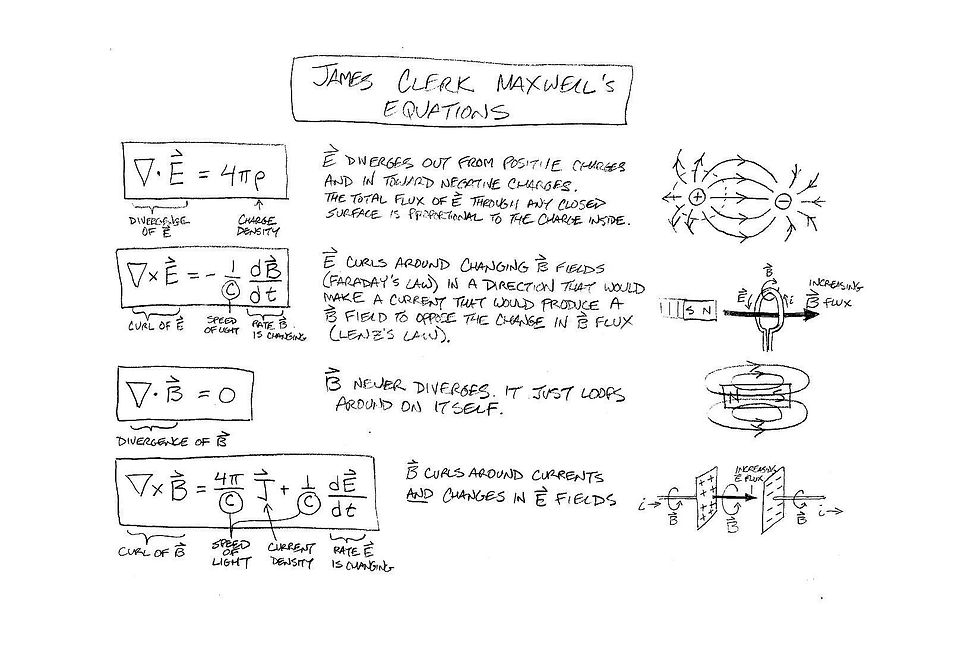 JAMES CLERK MAXWELL'S
EQUATIONS
∇·E⃗ = 4πρ
DIVERGENCE
OF E⃗
CHARGE
DENSITY
E⃗ DIVERGES OUT FROM POSITIVE CHARGES
AND IN TOWARD NEGATIVE CHARGES.
THE TOTAL FLUX OF E⃗ THROUGH ANY CLOSED
SURFACE IS PROPORTIONAL TO THE CHARGE INSIDE.
+ −
∇×E⃗ = - 1/C dB⃗/dt
CURL OF E⃗
SPEED
OF LIGHT
RATE B⃗
IS CHANGING
E⃗ CURLS AROUND CHANGING B⃗ FIELDS
(FARADAY'S LAW) IN A DIRECTION THAT WOULD
MAKE A CURRENT THAT WOULD PRODUCE A
B⃗ FIELD TO OPPOSE THE CHANGE IN B⃗ FLUX
(LENZ'S LAW).
S N
B⃗
E⃗
i
INCREASING
B⃗ FLUX
∇·B⃗ = 0
DIVERGENCE OF B⃗
B⃗ NEVER DIVERGES. IT JUST LOOPS
AROUND ON ITSELF.
N S
∇×B⃗ = 4π/C J⃗ + 1/C dE⃗/dt
CURL OF B⃗
SPEED
OF
LIGHT
CURRENT
DENSITY
RATE E⃗
IS CHANGING
B⃗ CURLS AROUND CURRENTS
AND CHANGES IN E⃗ FIELDS
INCREASING
E⃗ FLUX
i→
B⃗
B⃗
B⃗
i→